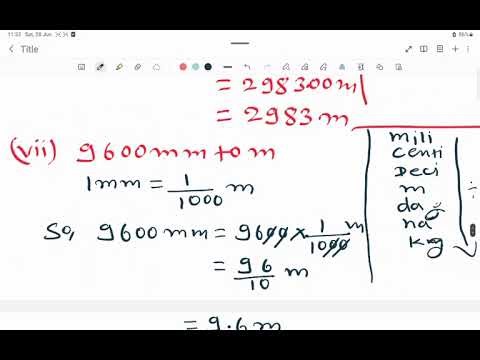 11:53 Sat, 28 Jun
86%
Title
= 298300 m
= 2983 m
(vii) 9600 mm to m
1mm = 1/1000 m
So, 9600 mm = 9600 x 1/1000 m
= 96/10 m
= 9.6 m
mili
centi
Deci
m
da
ha
kg
÷